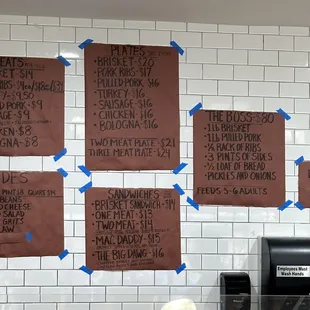 PLATES
•BRISKET-$20
•PORK RIBS-$17
•PULLED PORK-$16
•TURKEY-$16
•SAUSAGE-$16
•CHICKEN-$16
•BOLOGNA-$16
TWO MEAT PLATE-$21
THREE MEAT PLATE-$24
SANDWICHES
•BRISKET SANDWICH-$14
•ONE MEAT-$13
•TWO MEAT-$14
•MAC DADDY-$15
•THE BIG DAWG-$16
THE BOSS-$80
•1LB BRISKET
•1LB PULLED PORK
•½ RACK OF RIBS
•3 PINTS OF SIDES
•½ LOAF OF BREAD
•PICKLES AND ONIONS
FEEDS 5-6 ADULTS
PORK-$9
CHICKEN-$8
BOLOGNA-$8
PINT-$8 QUART-$14
BEANS
CHEESE
SALAD
GRITS
SLAW
Employees Must
Wash Hands